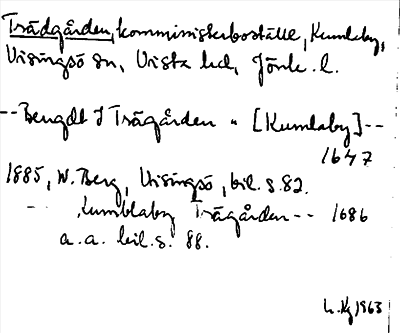 Trädgården, kommnisterboställe, Kumlaby,
Visingsö sn, Vista hd, Jönk. l.
-- Bengdt I Trägården " [Kumlaby] --
1647
1885, W. Berg, Visingsö, bil. s. 82.
-- Kumblaby Trägården -- 1686
a. a. bil. s. 88.
1963